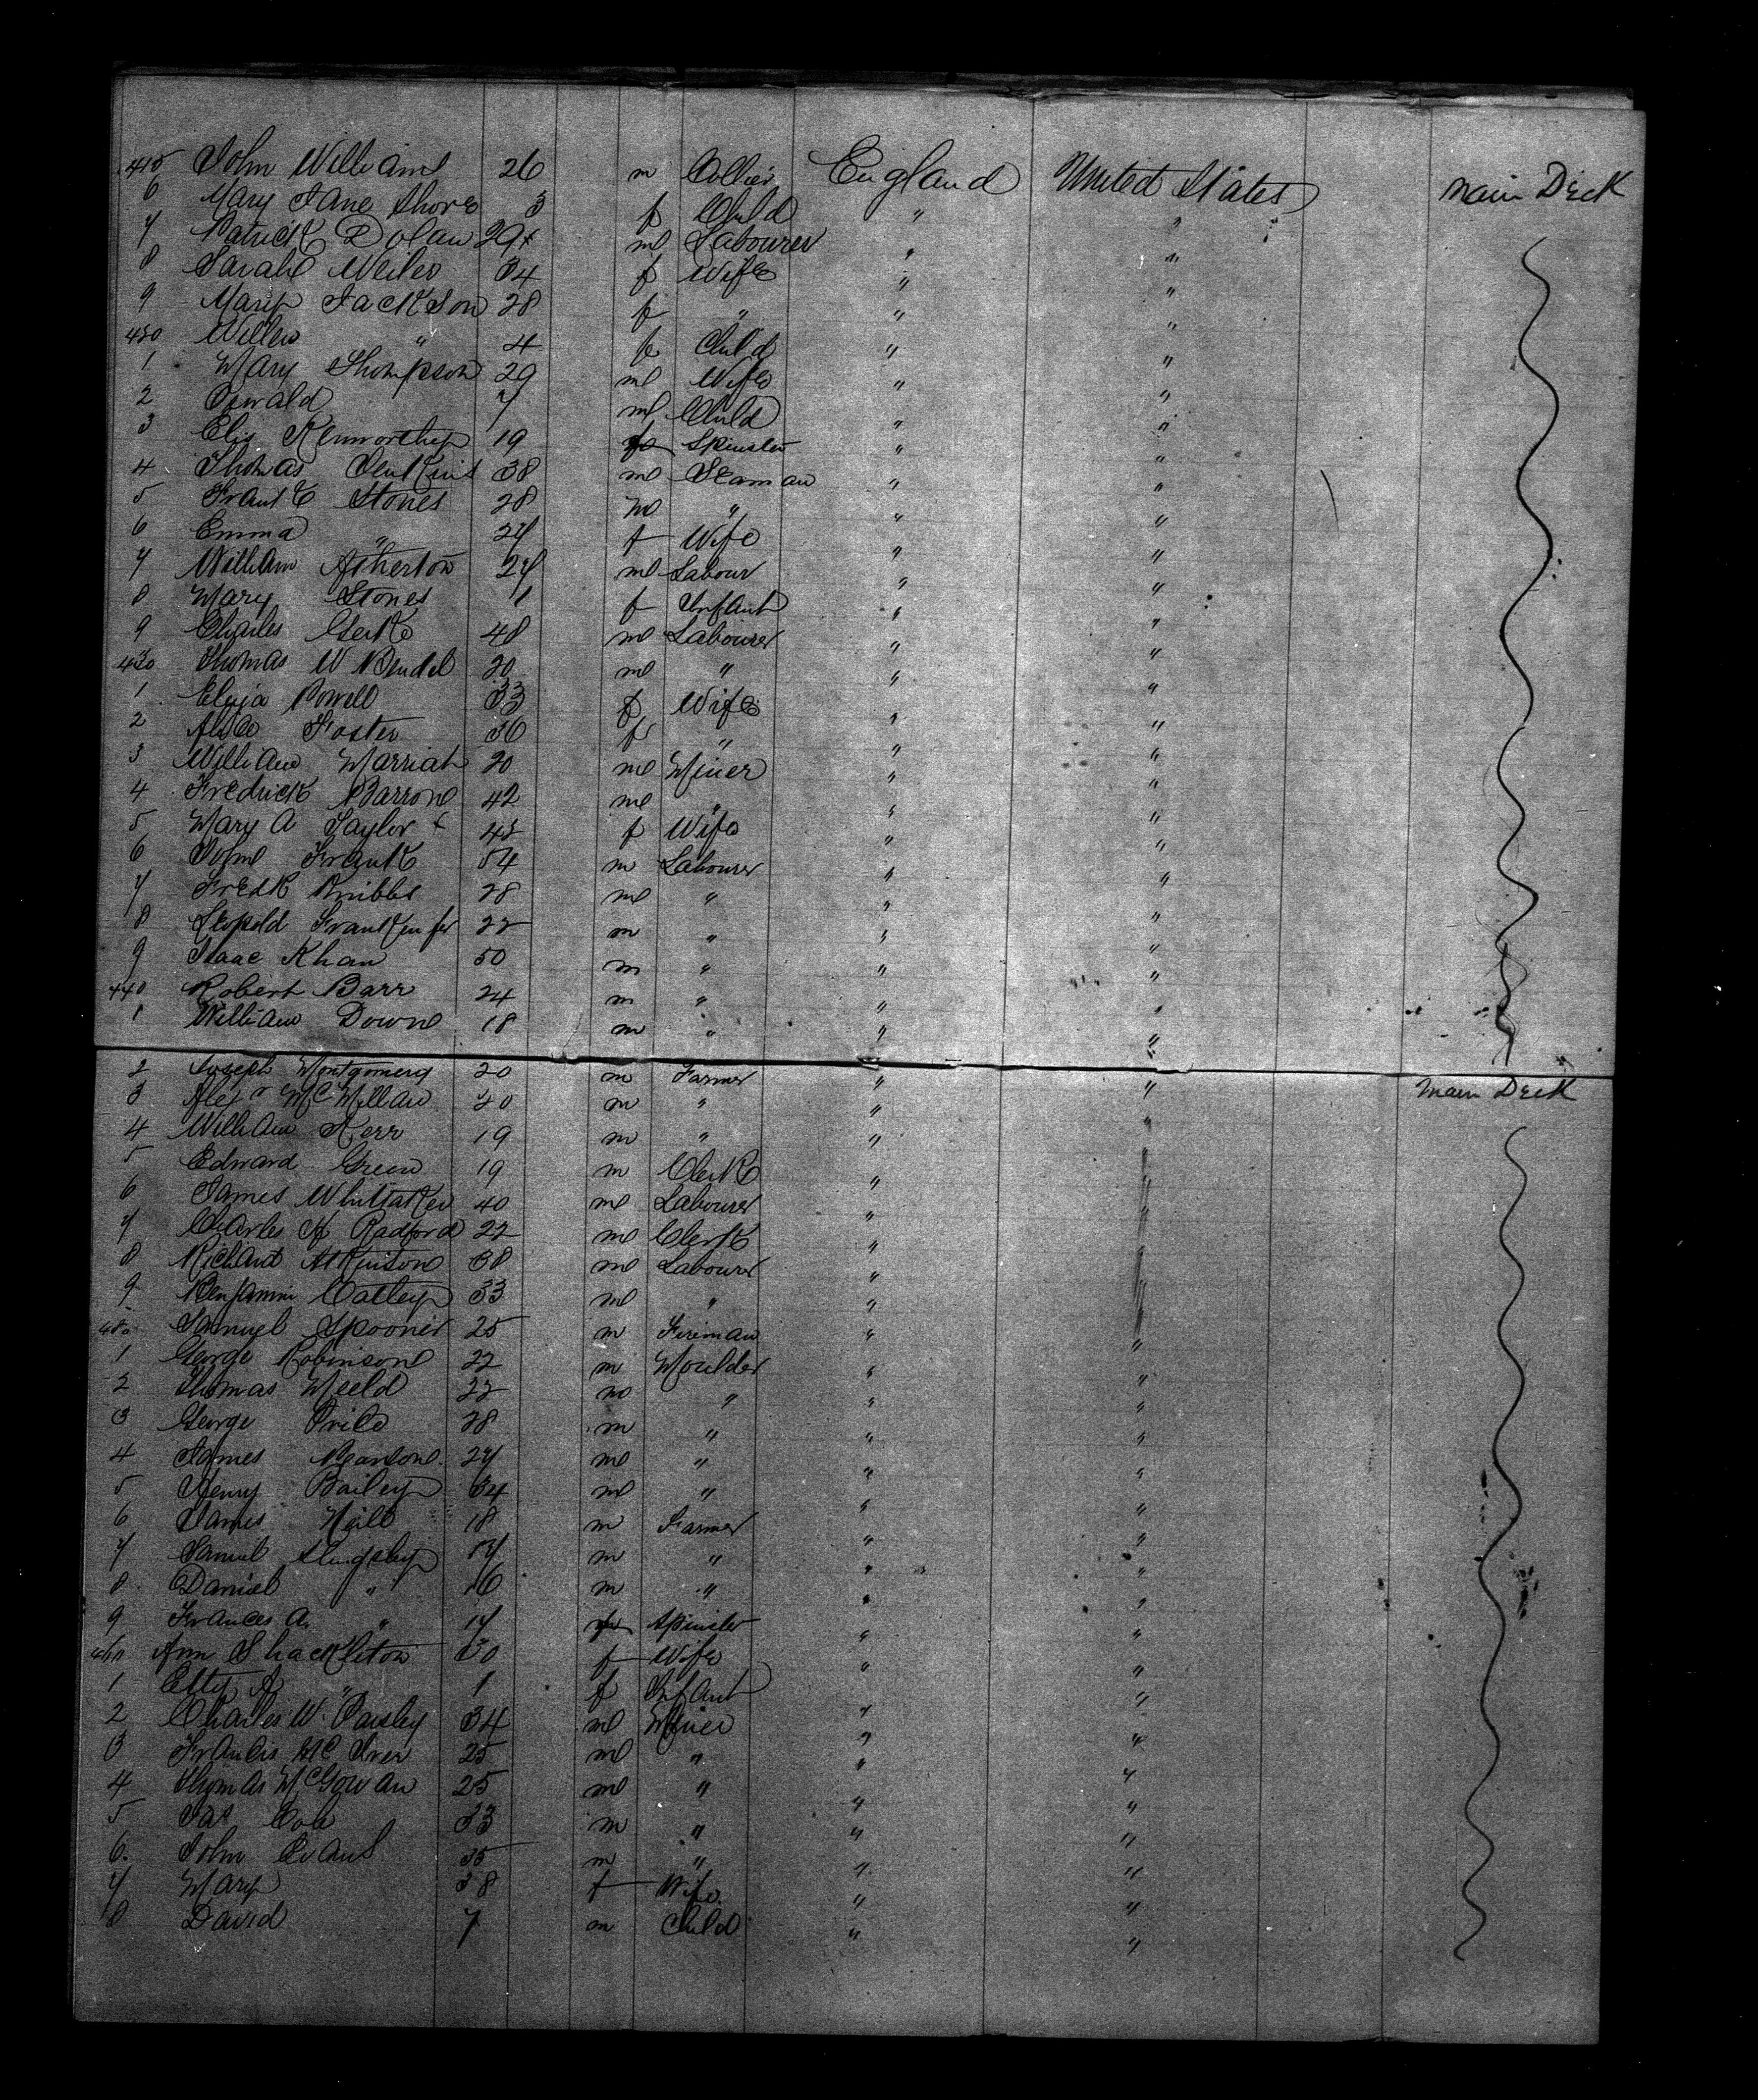 415 John William 26 m Collier England United States Main Deck
6 Mary Jane Shore 3 f Child " "
7 Patrick Dolan 29 x m Labourer " "
8 Sarah 34 f Wife " "
9 Mary Jackson 28 f " " "
420 " 4 f Child " "
1 Mary Thompson 29 m Wife " "
2 Oswald 7 m Child " "
3 Eliz Kenworthy 19 f Spinster " "
4 Thomas Jenkins 38 m Seaman " "
5 Frank Stones 28 m " " "
6 Emma " 27 f Wife " "
7 William Atherton 27 m Labour " "
8 Mary Stones 1 f Infant " "
9 Charles 48 m Labourer " "
430 Thomas W 20 m " " "
1 Eliza Powell 33 f Wife " "
2 Alice Foster 36 f " " "
3 William Marriat 20 m Miner " "
4 Fredrick Barron 42 m " " "
5 Mary A Taylor x f Wife " "
6 John Frank 54 m Labourer " "
7 Fredk Knibbs 28 m " " "
8 Leopold 22 m " " "
9 Isaac Khan 50 m " " "
440 Robert Barr 24 m " " "
1 William Down 18 m " " "
2 Joseph Montgomery 20 m Farmer " " Main Deck
3 Alexr McMillan 20 m " " "
4 William Kerr 19 m " " "
5 Edward Green 19 m Clerk " "
6 James Whittaker 40 m Labourer " "
7 Charles H Radford 22 m Clerk " "
8 Richard Atkinson 38 m Labourer " "
9 Benjamin Catley 33 m " " "
450 Samuel Spooner 25 m Fireman " "
1 George Robinson 22 m Moulder " "
2 Thomas 22 m " " "
3 George Price 28 m " " "
4 James Pearson 27 m " " "
5 Henry Bailey 34 m " " "
6 James Neill 18 m Farmer " "
7 Samuel Slingsby m " " "
8 Daniel " 16 m " " "
9 Frances A. " 17 f Spinster " "
460 Ann Shackleton 30 f Wife " "
1 Etty A " 1 f Infant " "
2 Charles W. Parsley 34 m Miner " "
3 Francis McIver 25 m " " "
4 Thomas McGowan 25 m " " "
5 Jas Cole 33 m " " "
6 John Evans 35 m " " "
7 Mary 38 f Wife " "
8 David 7 m Child " "